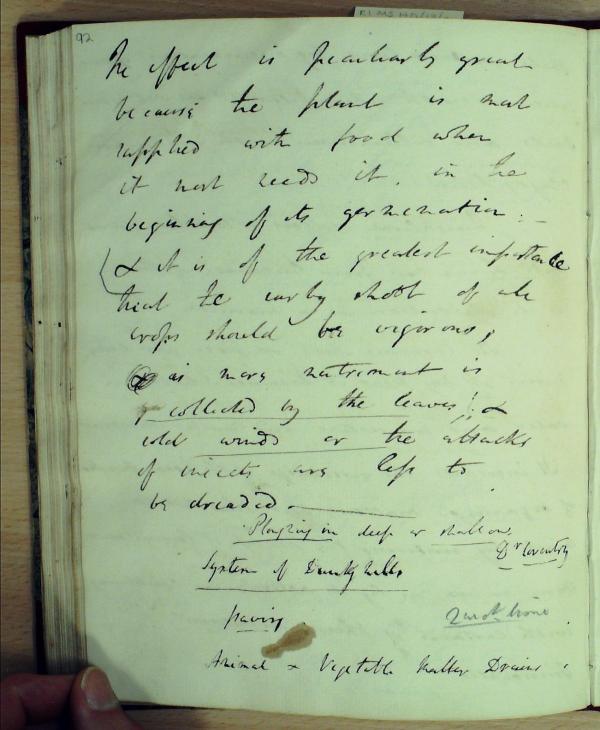 92
The effect is peculiarly great
because the plant is most
supplied with food when
it most needs it, in the
beginning of its germination.
& it is of the greatest importance
that the early shoot of all
crops should be vigorous;
as more nutriment is
collected by the leaves; &
cold winds or the attacks
of insects are less to
be dreaded.
Ploughing in deep or shallow
Dr Coventry
System of
paring
Animal & Vegetable Matter Drains